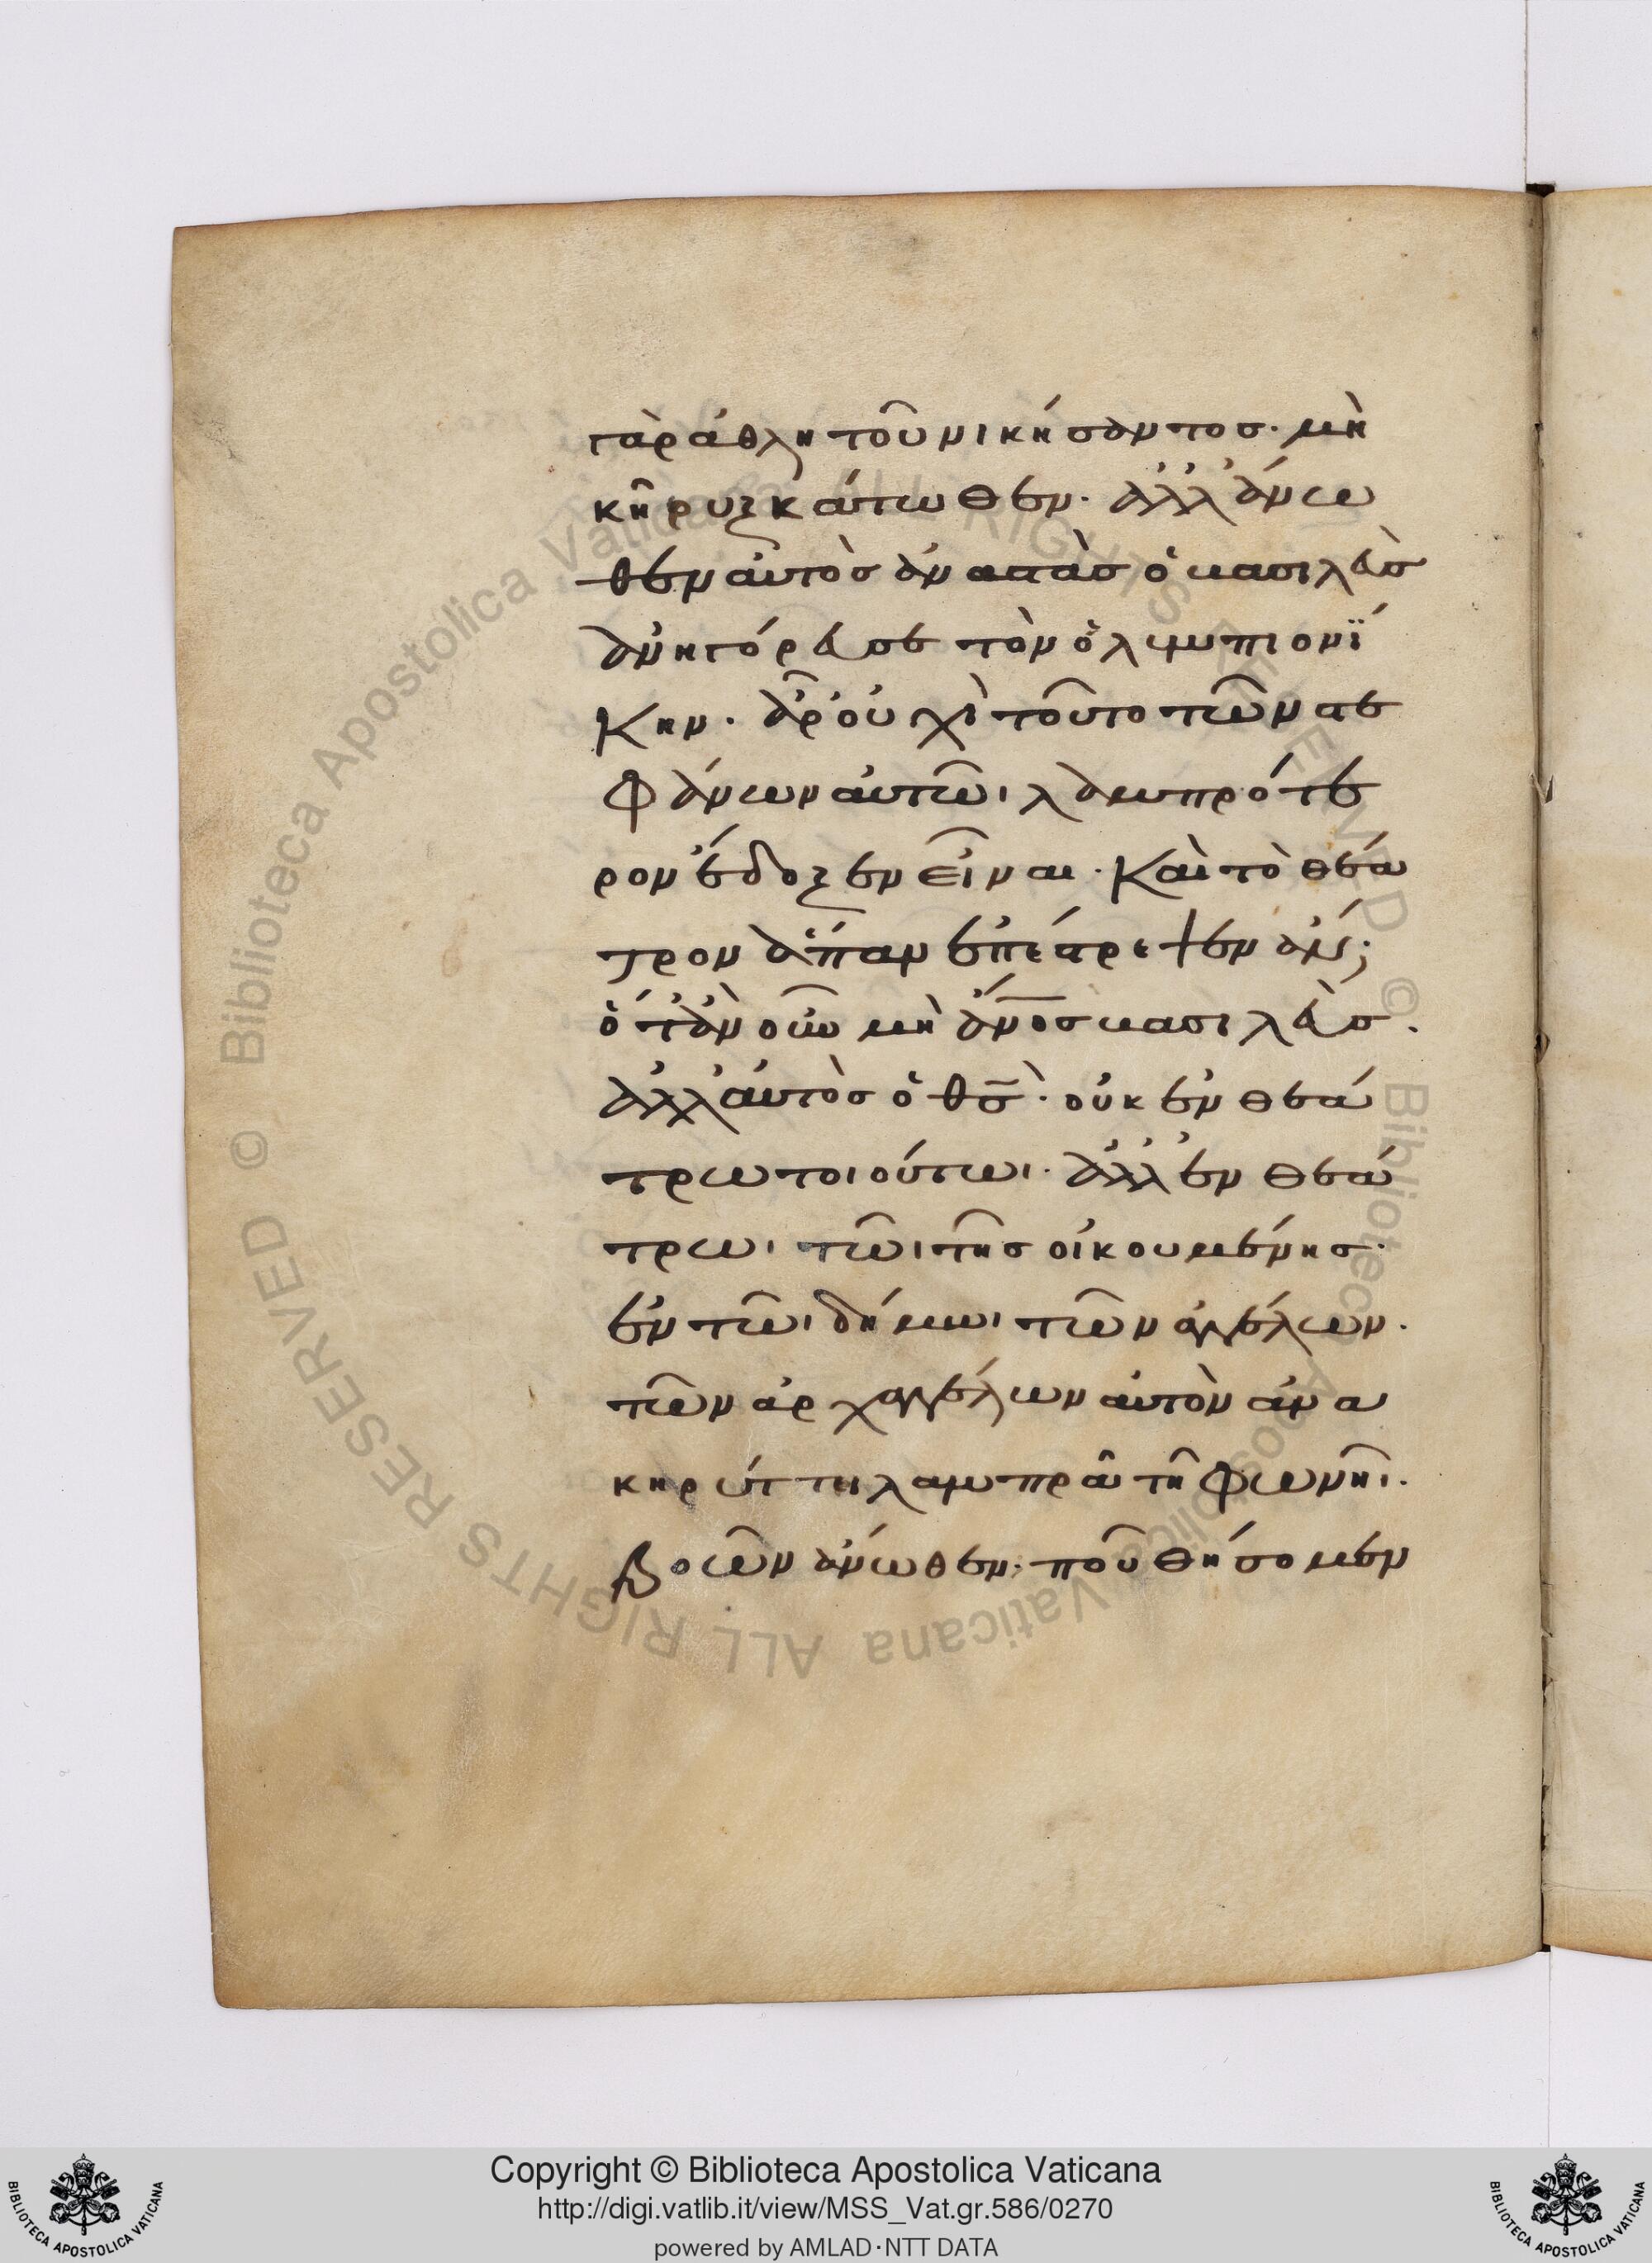 γὰρ ἀθλητοῦ νικήσαντος· μὴ
κῆρυξ κάτωθεν· ἀλλ' ἄνω
θεν αὐτὸς ἀναστὰς ὁ βασιλεὺς
ἀνηγόρευσε τὸν ὀλυμπιονί
κην· ἆρ' οὐχὶ τοῦτο τῶν στε
φάνων αὐτῶι λαμπρότε
ρον ἔδοξεν εἶναι· καὶ τὸ θέα
τρον ἅπαν ἐπέστρεψεν ἂν;
ὅτ' ἂν οὖν μὴ ἄνος βασιλεὺς·
ἀλλ' αὐτὸς ὁ θς· οὐκ ἐν θεά
τρω τοιούτωι· ἀλλ' ἐν θεά
τρωι τῶι τῆς οἰκουμένης·
ἐν τῶι δήμωι τῶν ἀγγέλων·
τῶν ἀρχαγγέλων αὐτὸν ἀνα
κηρύττηι λαμπρᾶ τῆ φωνῆι·
βοῶν ἄνωθεν· ποῦ θήσομεν
Copyright © Biblioteca Apostolica Vaticana
http://digi.vatlib.it/view/MSS_Vat.gr.586/0270
powered by AMLAD·NTT DATA
BIBLIOTECA APOSTOLICA VATICANA
BIBLIOTECA APOSTOLICA VATICANA
© Biblioteca Apostolica Vaticana ALL RIGHTS RESERVED © Biblioteca Apostolica Vaticana ALL RIGHTS RESERVED